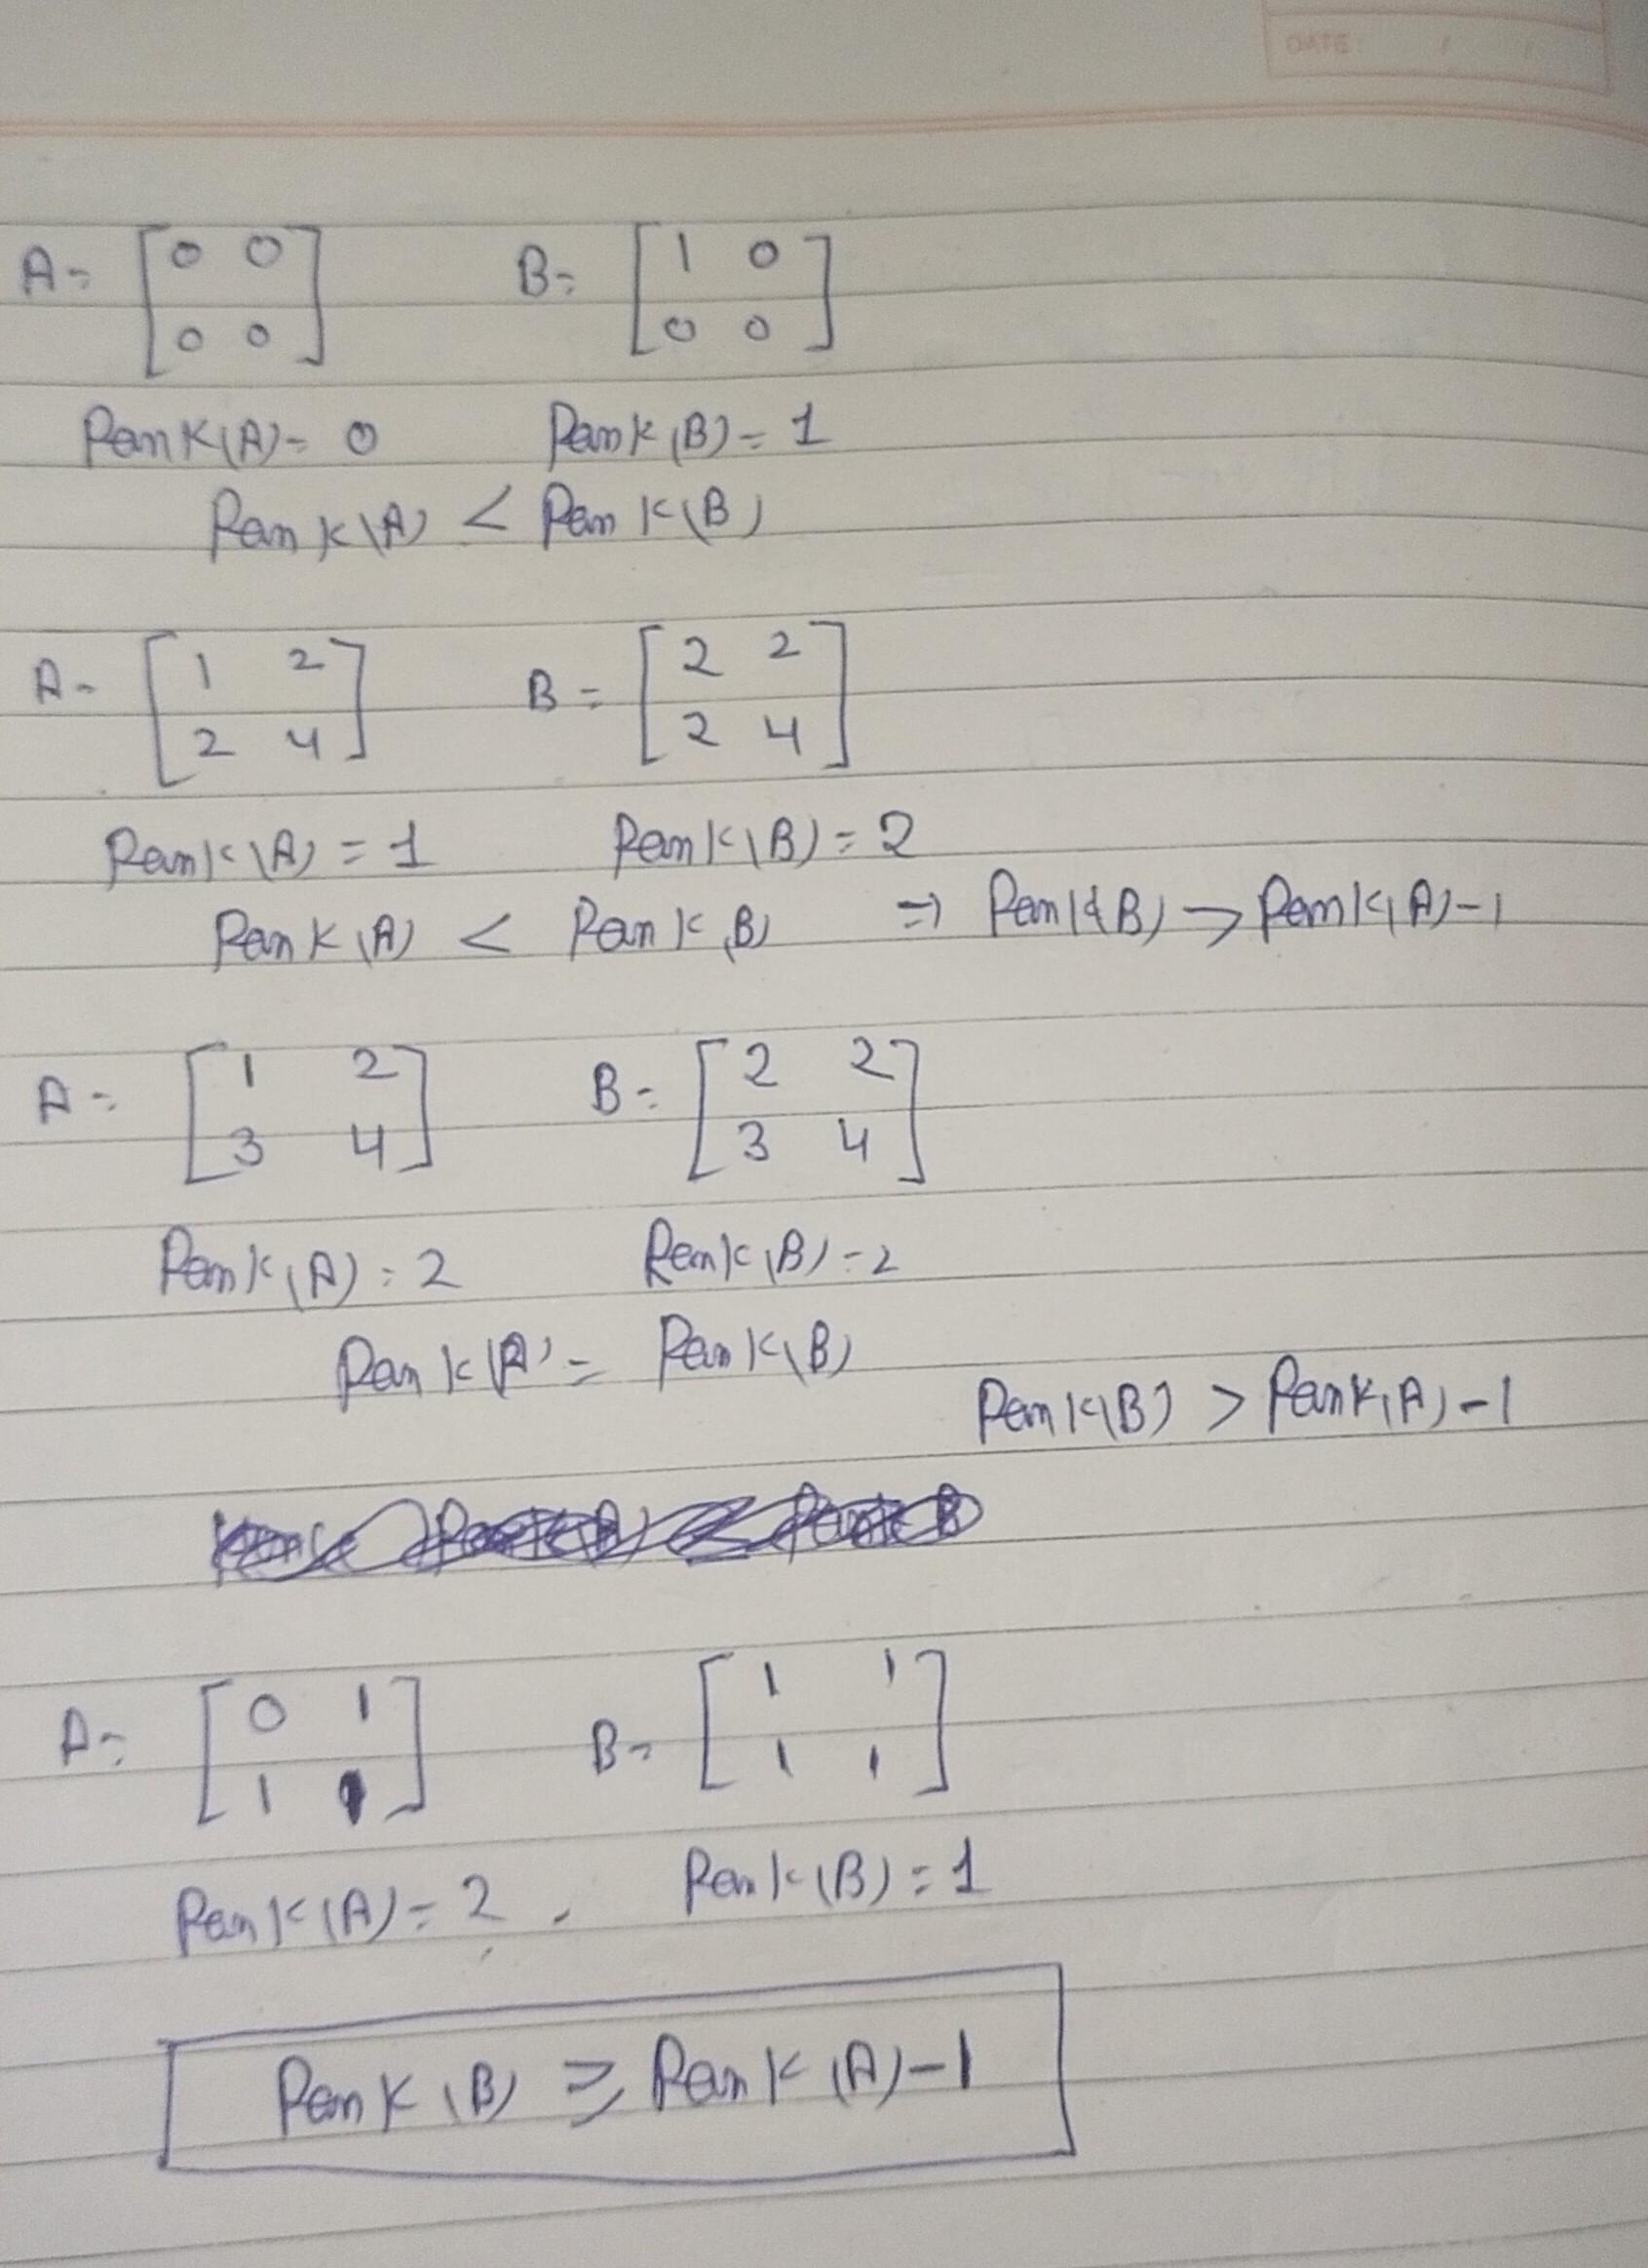 DATE: / /
A= [0 0 B= [1 0
0 0] 0 0]
Rank(A)= 0 Rank(B)= 1
Rank(A) < Rank(B)
A= [1 2 B= [2 2
2 4] 2 4]
Rank(A) = 1 Rank(B)= 2
Rank(A) < Rank(B) ⇒ Rank(B) > Rank(A)-1
A= [1 2 B= [2 2
3 4] 3 4]
Rank(A)= 2 Rank(B)=2
Rank(A) = Rank(B)
Rank(B) > Rank(A)-1
A= [0 1 B= [1 1
1 1] 1 1]
Rank(A)= 2, Rank(B)= 1
Rank(B) ≥ Rank(A)-1